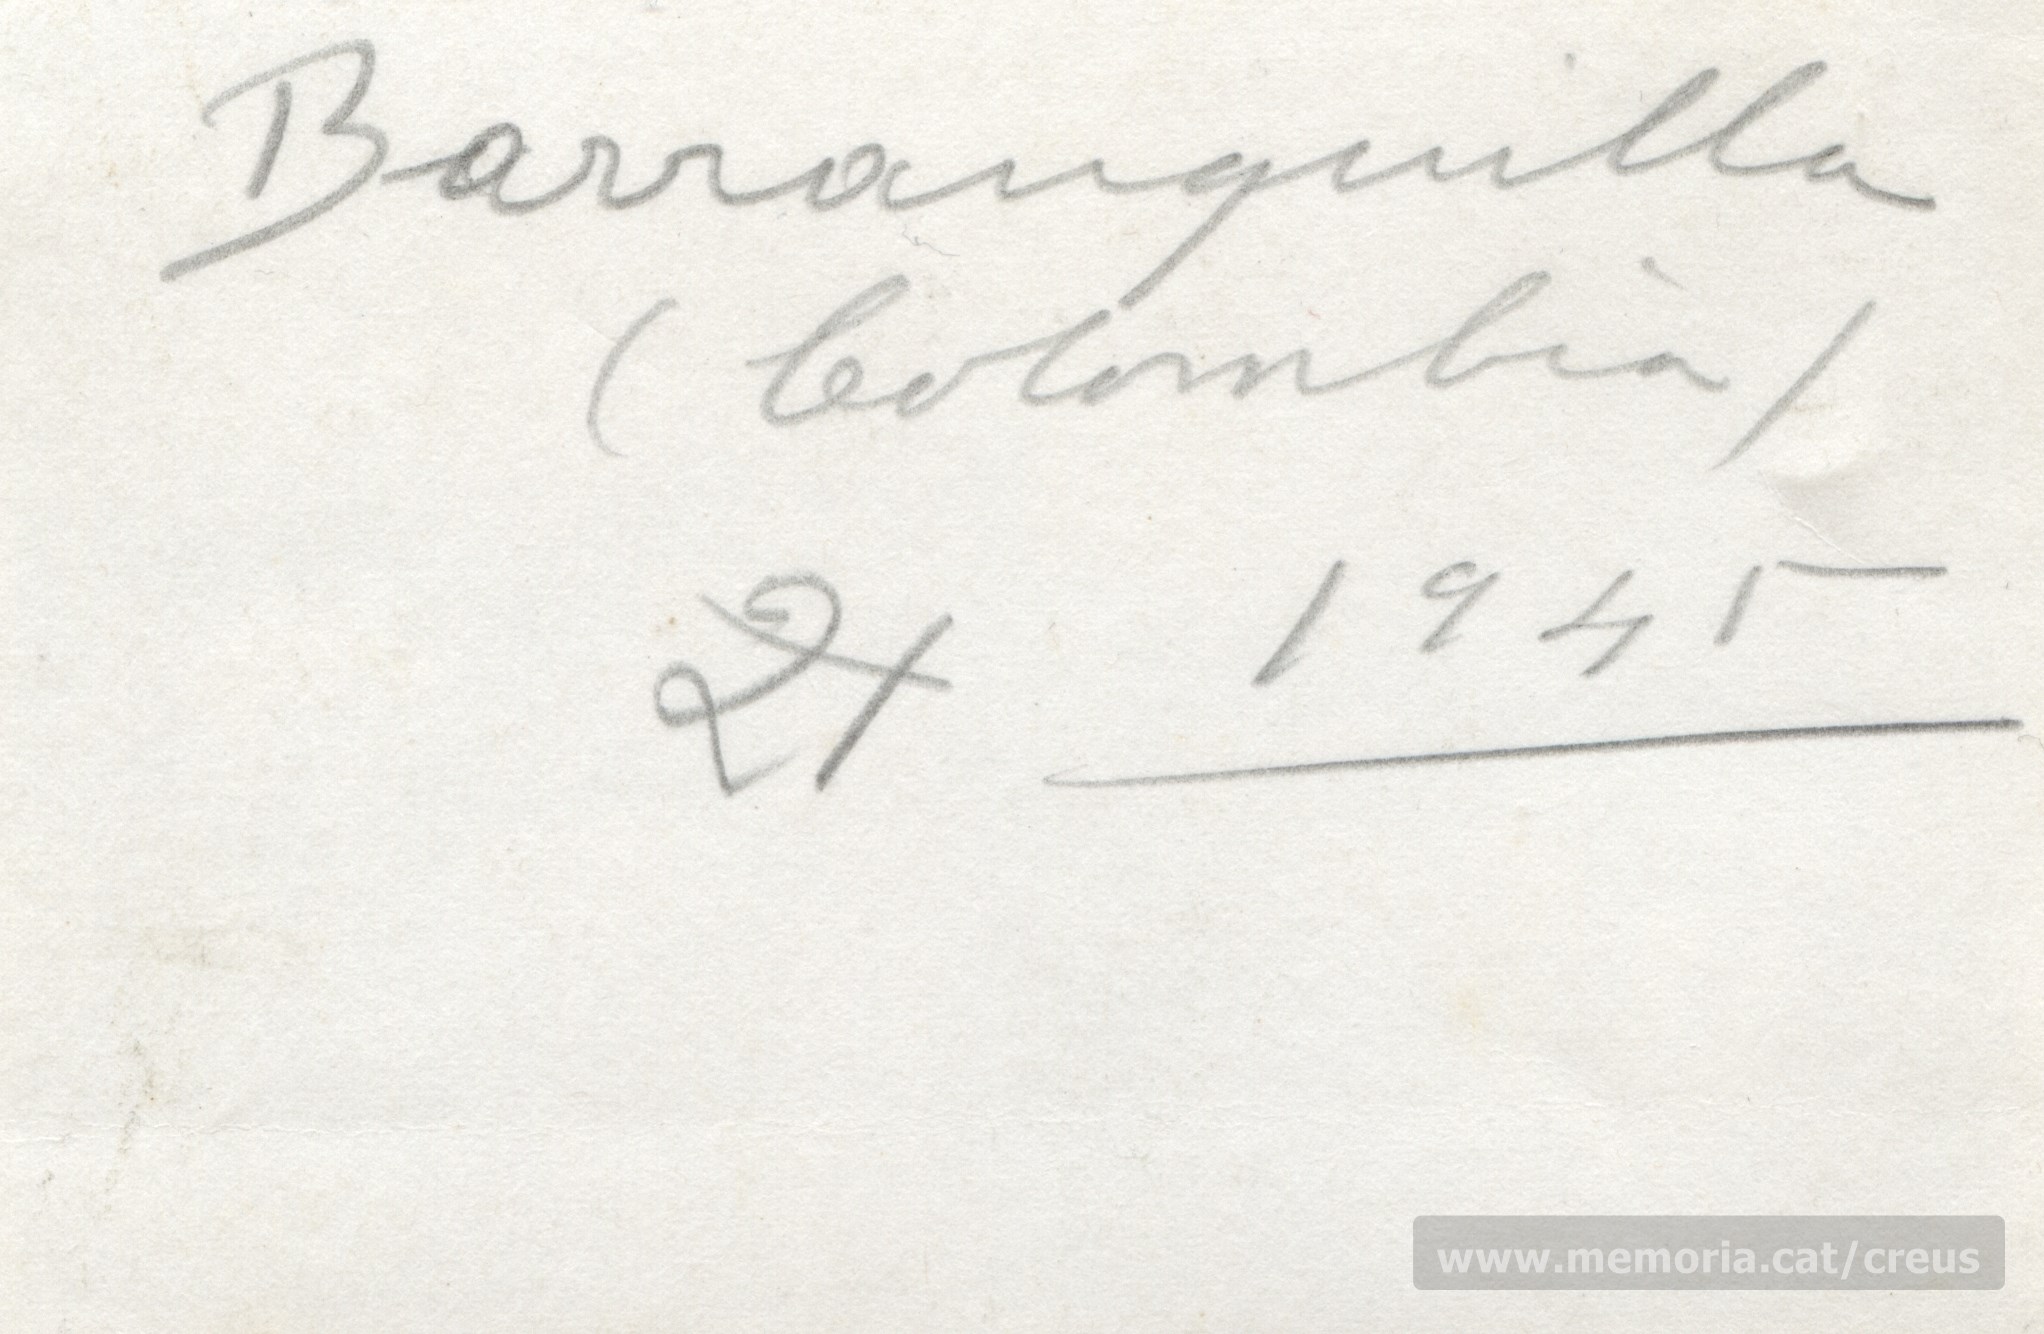 Barranquilla
(Colombia)
1945
www.memoria.cat/creus